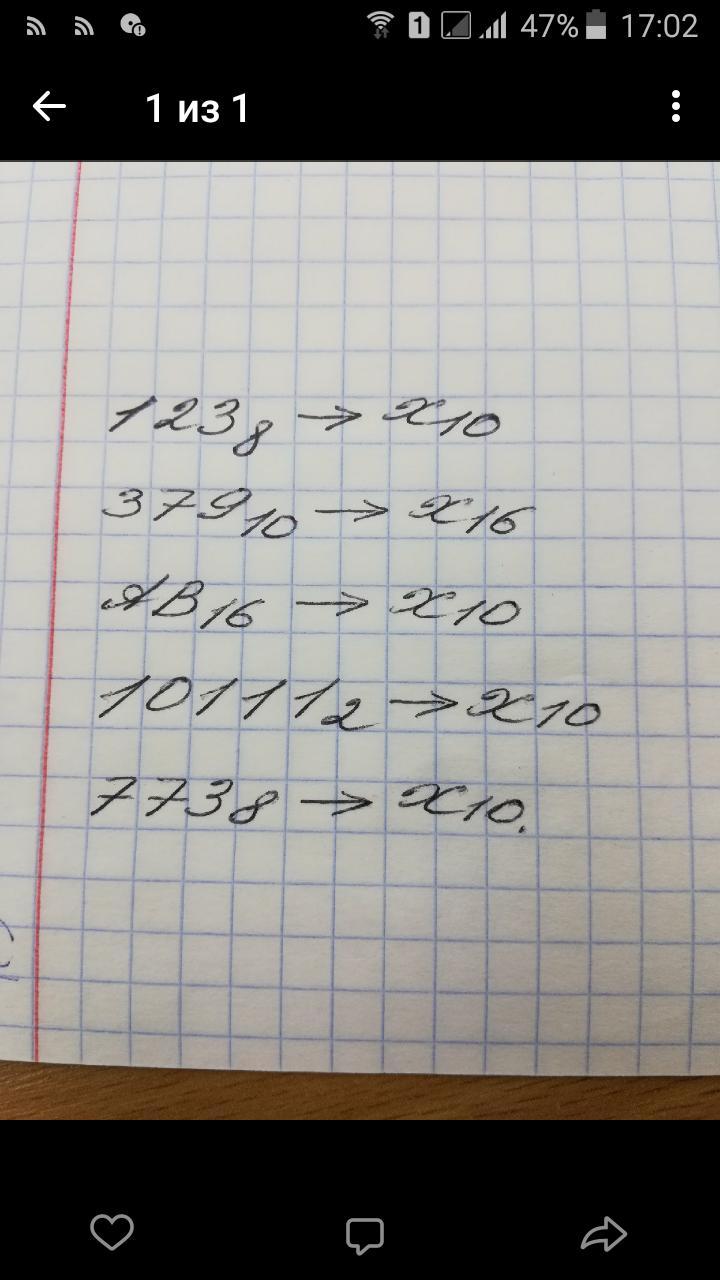 47% 17:02
1 из 1
123₈ → x₁₀
379₁₀ → x₁₆
AB₁₆ → x₁₀
10111₂ → x₁₀
773₈ → x₁₀.